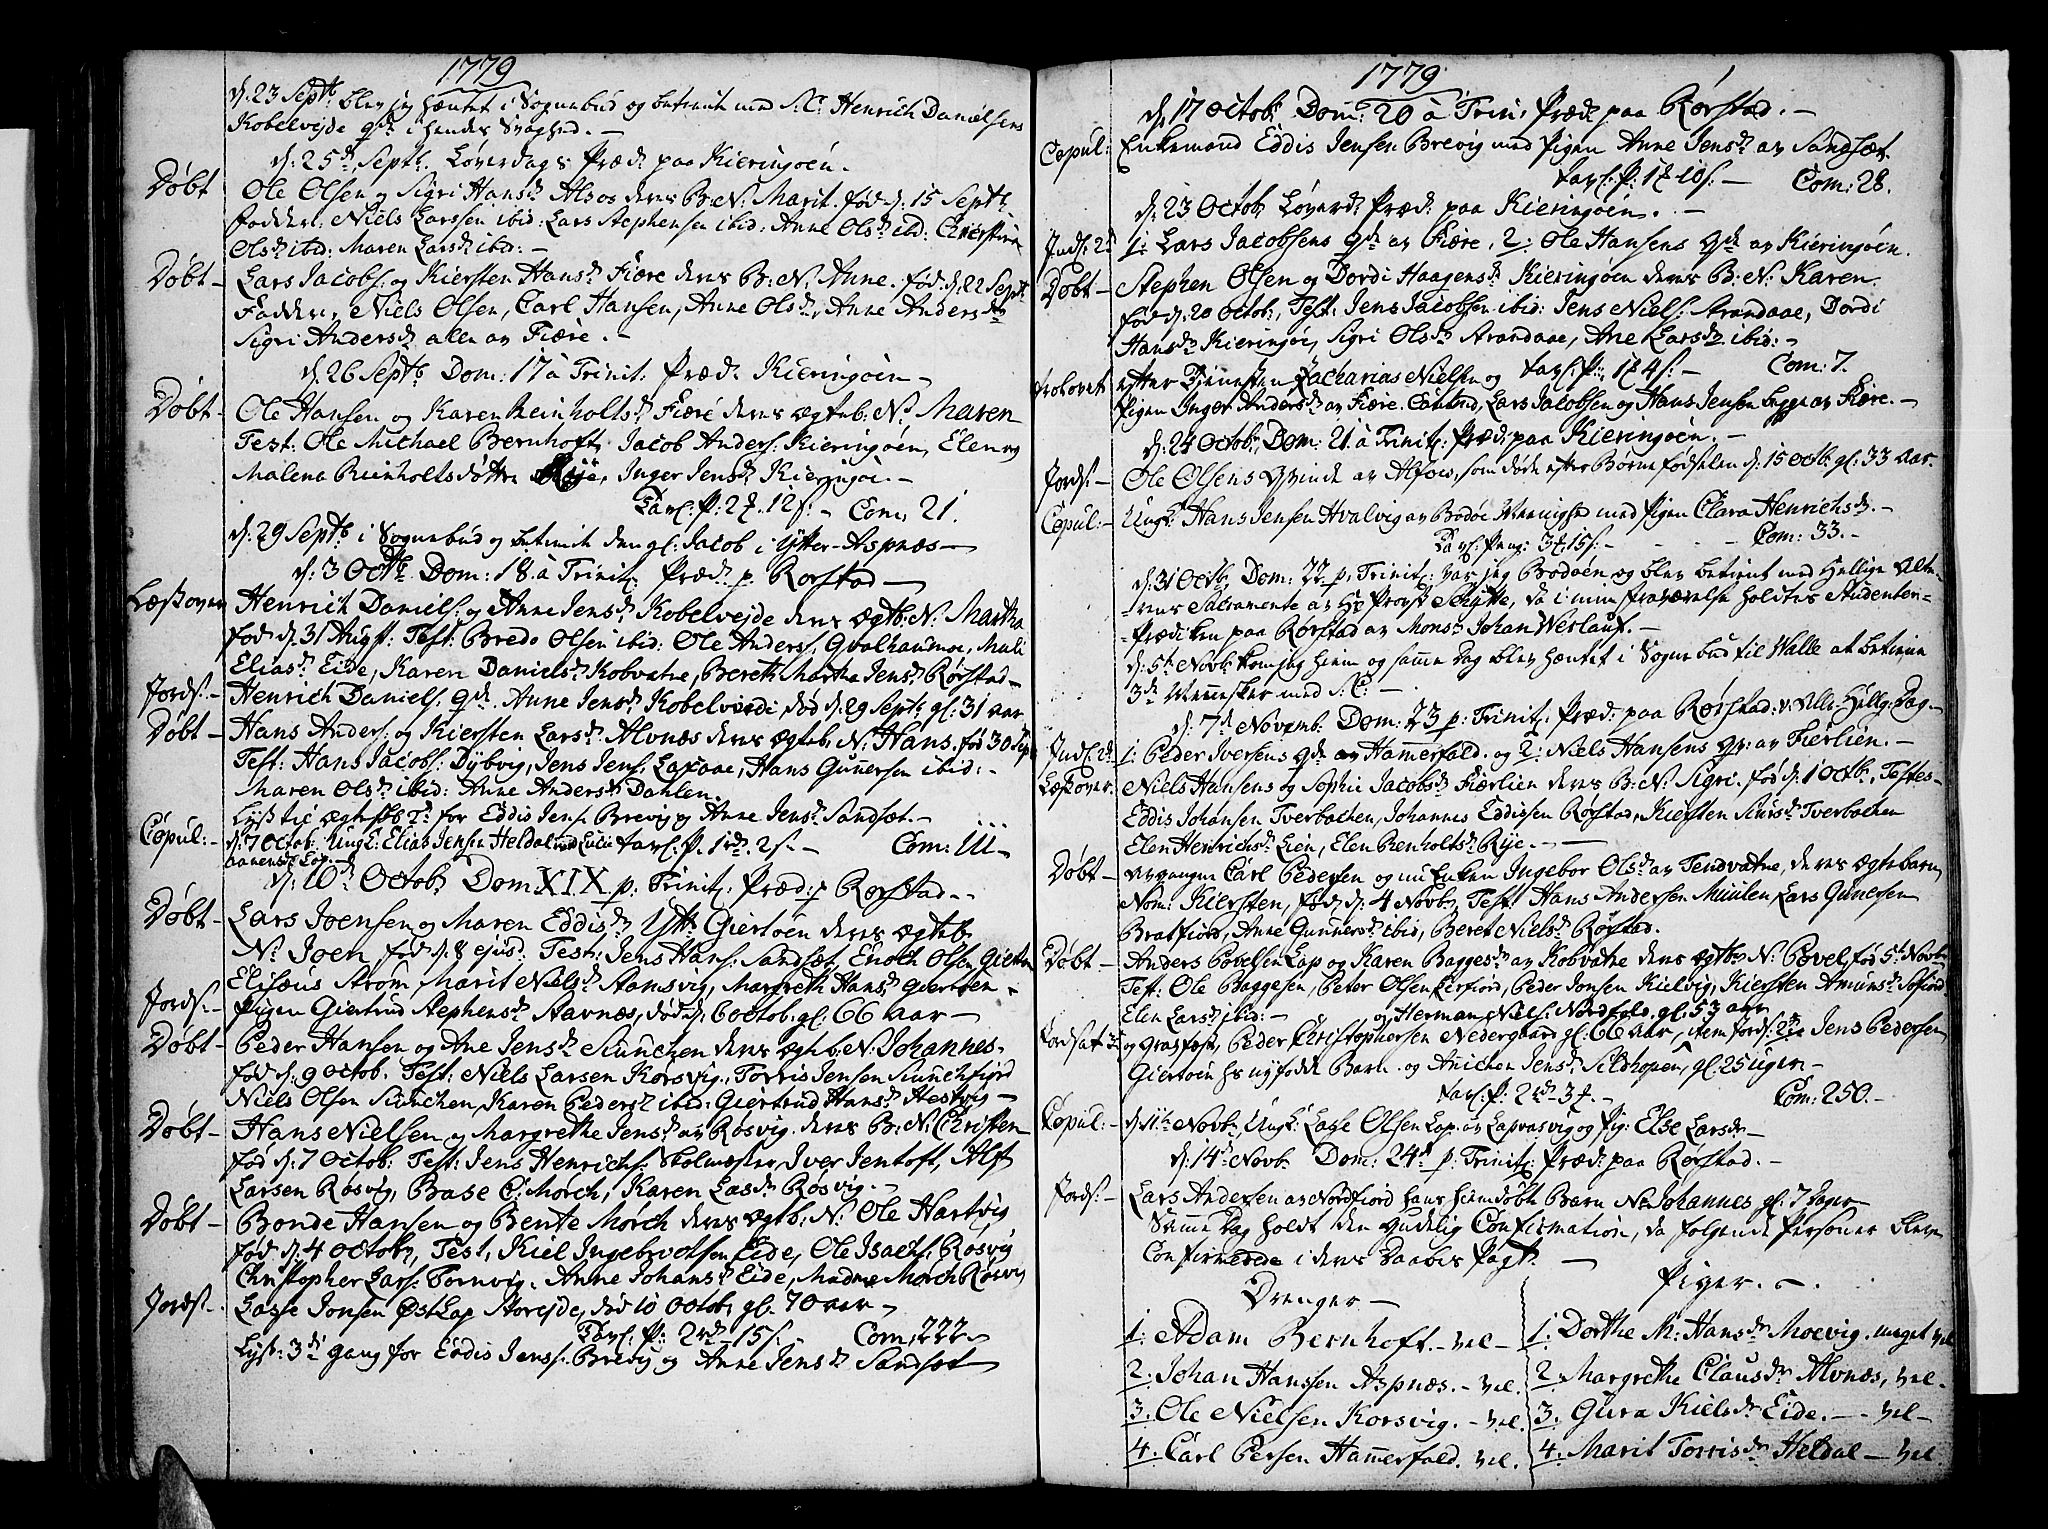 1779
d: 23 Septb: blev jeg hæntet i Sognebud og betiente med S: C: Henrich Danielsens
Kobelvejde qde i hendes Svaghed. —
d: 25d Septb. Løverdags Præd: paa Kieringøen.
Døbt Ole Olsen og Sigri Hansdr Alsos deres B. N: Marit. fød d: 15 Septb:
fadder: Niels Larssen ibid: Lars Stephensen ibid: Anne Olsdr ibd: Christina
Olsdr ibid: Maren Larsdr ibid: —
Døbt — Lars Jacobs: og Kiersten Hansdr Fiære deres B: N: Anne. fød: d: 22 Septb:
Fadder, Niels Olsen, Carl Hansen, Anne Olsdr, Anne Andersdr
Sigri Andersdr allen av Fiære. —
d: 26 Septb Dom: 17 à Trinit: Præd: Kieringøen —
Døbt — Ole Hansen og Karen Reinholtsdr Fiære deres ægteb: N: Maren
Test: Ole Michael Bernhoft, Jacob Anders: Kieringøen, Elen og
Malena Reinholtsdøttre Rije, Inger Jensdr Kieringøe. —
Tavl: P: 2 f. 12 s: — Com: 21.
d: 29 Septb i Sognebud og betiente den gl: Jacob i Ytter-Aspnæs —
d: 3 Octb. Dom: 18. à Trinit: Præd: p. Rørstad —
Læst over Henrich Daniels: og Anne Jensdr Kobelvejde deres ægtb: N: Martha
fød d: 31 Augst: Test: Bredo Olsen ibid: Ole Anders: Qvalhammer, Mali
Eliasdr Eide, Karen Danielsdr Kobvatne, Bereth Martha Jensdr Rørstad —
Jords: — Henrich Daniels: qde. Anne Jensdr Kobelveidi, død d: 29 Septb: gl: 31 aar
Døbt — Hans Anders: og Kiersten Larsdr Alvnæs deres ægteb: N: Hans. fød 30 Sept
Test: Hans Jacobs: Dybvig, Jens Jens: Laxaae, Hans Gunnersen ibid: —
Maren Olsdr ibid: Anne Andersdr Dahlen.
Lyst til ægteskb 2d for Eddis Jens: Brevig og Anne Jensdr Sandsæt. — ...
Copul: — d: 7 Octob: Ungk: Elias Jensen Heldal med Lucie Tavl: P. 1 rd. 2 s: — Com: III —
Aanensdr Lap: —
d: 10d Octobr Dom XIX p: Trinit: Præd: p Rørstad —
Døbt — Lars Joensen og Maren Eddisdr Yttr Giertøen deres ægteb
N: Joen, fød d: 8 ejusd: Test: Jens Hans: Sandsæt, Enoch Olsen Giertøe
Elisæus Strøm, Marit Nielsdr Stamsvig, Margreth Hansdr Giertøen —
Jords: — Pigen Giertrud Stephensdr Stavnæs, død d: 6 Octob: gl: 66 Aar —
Døbt — Peder Hansen og Ane Jensdr Sünchen deres ægteb: N: Johannes.
fød d: 9 Octob. Test: Niels Larsen Korsvig, Torris Jensen Sünchfiord
Niels Olsen Sünchen, Karen Pedersdr ibid: Giertrud Hansdr Hestvig —
Døbt — Hans Nielsen og Margrethe Jensdr av Røsvig. deres B: N: Christen
fød d: 7 Octob: Test: Jens Henrichs: Skolmæster, Iver Jentoft, Alf
Larsen Røsvig, Base C: Mørch, Karen Lasdr Røsvig. —
Døbt — Bonde Hansen og Bente Mørch deres ægtb: N: Ole Hartvig
fød d: 4 Octobr, Test, Kiel Ingebrodtsen Eide, Ole Isachs: Røsvig
Christopher Lars: Tornvig, Anne Johansdr Eide, Madme Mørch Røsvig
Jords: — Lasse Jonsen Øst Lap Storejde, død 10 Octob: gl: 70 aar —
Tavl: P: 2 rd — 15 s. — Com: 222 —
Lyst: 3di gang for Eddis Jenss: Brevig og Anne Jensdr Sandsæt —
1779.
d: 17 Octob: Dom: 20 à Trin: Præd: paa Rørstad. —
Copul: Enkemand Eddis Jensen Brevig med Pigen Anne Jensdr av Sandsæt.
Tavl: P: 1 f 10 s: — Com: 28.
d: 23 Octob Løverd: Præd: paa Kieringøen. —
Indl: 2d 1: Lars Jacobsens qde av Fiære, 2: Ole Hansens Qde av Kieringøen.
Døbt — Stephen Olsen og Dordi Haagensdr Kieringøen deres B: N: Karen.
fød d: 20 Octob:, Test: Jens Jacobsen ibid: Jens Niels: Strandaae, Dordi
Hansdr Kieringøe, Sigri Olsdr Strandaae, Ane Larsdr ibid: —
Tavl: P: 1 f 4 s: — Com: 7.
Trolovet efter Tjenesten Zacharias Nielsen og
Pigen Inger Andersdr av Fiære. Caverd, Lars Jacobsen og Hans Jensen begge av Fiære. —
d: 24 Octob: Dom: 21. à Trinit: Præd: paa Kieringøen. —
Jords: — Ole Olsens Qvinde av Alsoes, som døde efter Børne fødselen d: 15 Octb: gl: 33 aar.
Copul: — Ungk: Hans Jensen Hvalvig av Bodøe Menighed med Pigen Clara Henrichsdr. —
Tavl: Peng: 3 f. 15 s: — Com: 33. —
d: 31 Octb. Dom: 22 p. Trinit: var jeg Bodøen og blev betient med Hellige Alte-
-rens Sacramente av Hr Provst Schytte, da i min fraværelse holdtes Studenter-
-Prædiken paa Rørstad av Monsr Johan Werlauf. —
d: 5te Novb: kom jeg hiem og samme Dag blev hæntet i Sognebud til Walle at betiene
3de Mennesker med S. C: —
d: 7d Novemb. Dom: 23 p: Trinit: Præd: paa Rørstad: v: Alle-Hellg: Dag —
Indl: 2d: 1: Peder Iversens qde av Hammerfald. og 2: Niels Hansens Qv: av Fierlien. —
Læst over. Niels Hansens og Sophie Jacobsdr Fierlien deres B: N: Sigri. fød d: 1 Octb:, Testes —
Eddis Johansen Tverbachen, Johannes Eddissen Rørstad, Kiersten Siursdr Tverbachen
Elen Henrichsdr Lien, Elen Renholtsdr Rije. —
Døbt — Avgangen Carl Pedersen og nu Enken Ingebor Olsdr av Tendvatne, deres ægtebarn
Nom: Kiersten, fød d: 4 Novb, Test: Hans Andersen Müülen Lars Gunersen
Bratfiord, Anne Gunnersdr ibid, Beret Nielsdr Rørstad.
Døbt — Anders Povelsen Lap og Karen Baggesdr av Kobvatne deres ægteb: N: Povel, fød 5te Novbr
Test: Ole Baggesen, Peter Olsen Lerfiord, Peder Jonsen Kielvig, Kiersten Amunsdr Sofiord
Elen Larsdr ibid: — og Herman Niels: Nordfold. gl: 53 aar
Jordsat 3: og Gravfæst, Peder Christophersen Nedergaard gl: 66 aar, item Jords: 2de Jens Pedersen
Giertøen hs nyfødde Barn. og Anichen Jensdr Sildhopen, gl: 25 uger —
Tavl: P: 2 rd — 3 f. — Com: 250. —
Copul: — d: 11te Novb: Ungk: Lasse Olsen Lap. av Lapvasvig og Pig: Else Larsdr —
d: 14d Novb. Dom: 24d p: Trinit: Præd: paa Rørstad. —
Jords: — Lars Andersen av Nordfiord hans hiemdøbt Barn N: Johannes gl: 7 Dager
Samme Dag holdt den Gudelig Confirmation, da følgende Personer bleve
Confirmerede i deres Daabes Pagt. —
Drenger —
1: Adam Bernhoft. — vel —
2. Johan Hanssen Aspnæs. — vel.
3. Ole Nielsen Korsvig. — vel.
4. Carl Persen Hammerfald. vel.
Piger. —
1: Dorthe M: Hansdr Moevig. meget vel
2. Margrethe Clausdr Alvnæs, vel —
3. Gura Kielsdr Eide. — vel —
4. Marit Torrisdr Heldal — vel